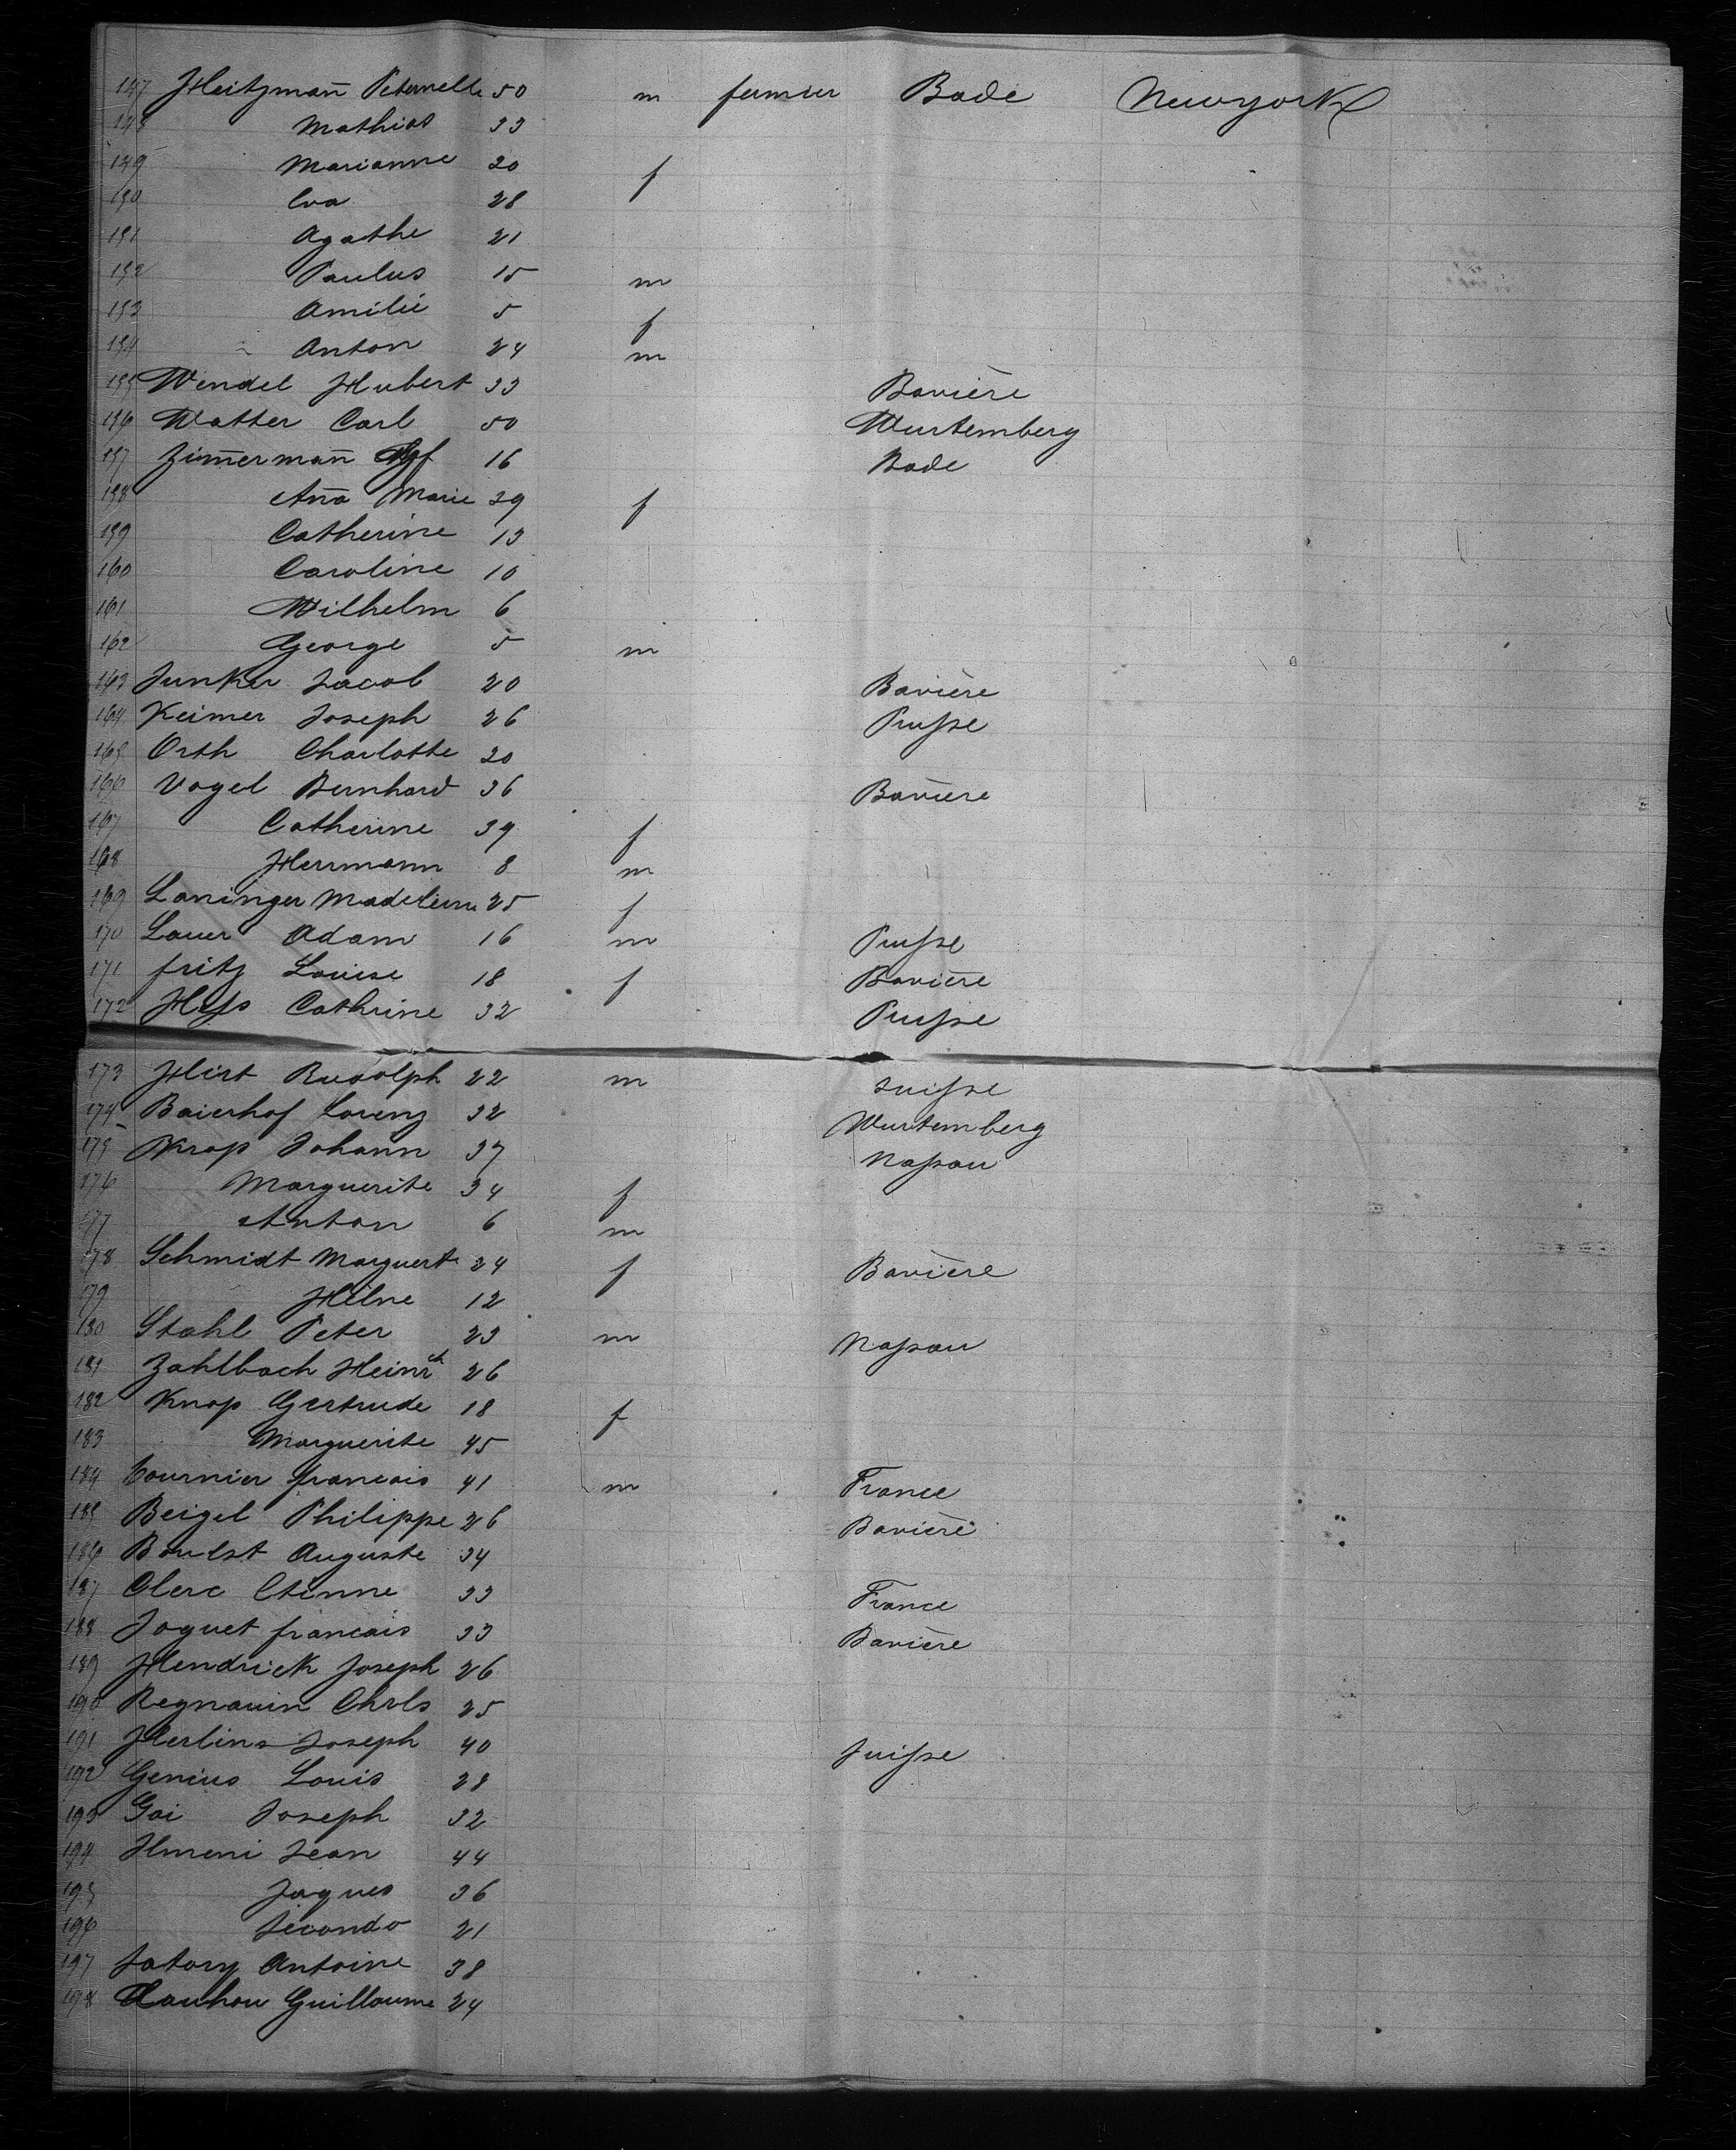 147 Heitzmañ Peternelle 50 m fermier Bade Newyork
148 Mathias 33
149 Marianne 20 f
150 Eva 28
151 Agathe 21
152 Paulus 15 m
153 Amilie 5 f
154 Anton 24 m
155 Wendel Hubert 33 Bavière
156 Watter Carl 50 Wurtemberg
157 Zim̄ermañ 16 Bade
158 Aña Marie 39 f
159 Catherine 13
160 Caroline 10
161 Wilhelm 6
162 George 5 m
163 Junker Jacob 20 Bavière
164 Keimer Joseph 26 Prusse
165 Orth Charlotte 20
166 Vogel Bernhard 36 Bavière
167 Catherine 39 f
168 Herrmann 8 m
169 Laninger Madeleine 25 f
170 Lauer Adam 16 m Prusse
171 fritz Louise 18 f Bavière
172 Hess Cathrine 32 Prusse
173 Hirt Rudolph 22 m Suisse
174 Baierhof Lorenz 32 Wurtemberg
175 Knop Johann 37 Nassau
176 Marguerite 34 f
177 Anton 6 m
178 Schmidt Marguerte 24 f Bavière
179 Hélne 12
180 Stahl Peter 23 m Nassau
181 Zahlbach Heinrch 26
182 Knop Gertrude 18 f
183 Marguerite 45
184 Tournier francois 41 m France
185 Beigel Philippe 26 Bavière
186 Boulst Auguste 34
187 Clerc Etienne 33 France
188 Joguet francais 33 Bavière
189 Hendrick Joseph 26
190 Regnauin Chrls 25
191 Herlins Joseph 40 Suisse
192 Genius Louis 28
193 Gai Joseph 32
194 Jean 44
195 Jaques 36
196 Secondo 21
197 Satory Antoine 38
198 Guillaume 24